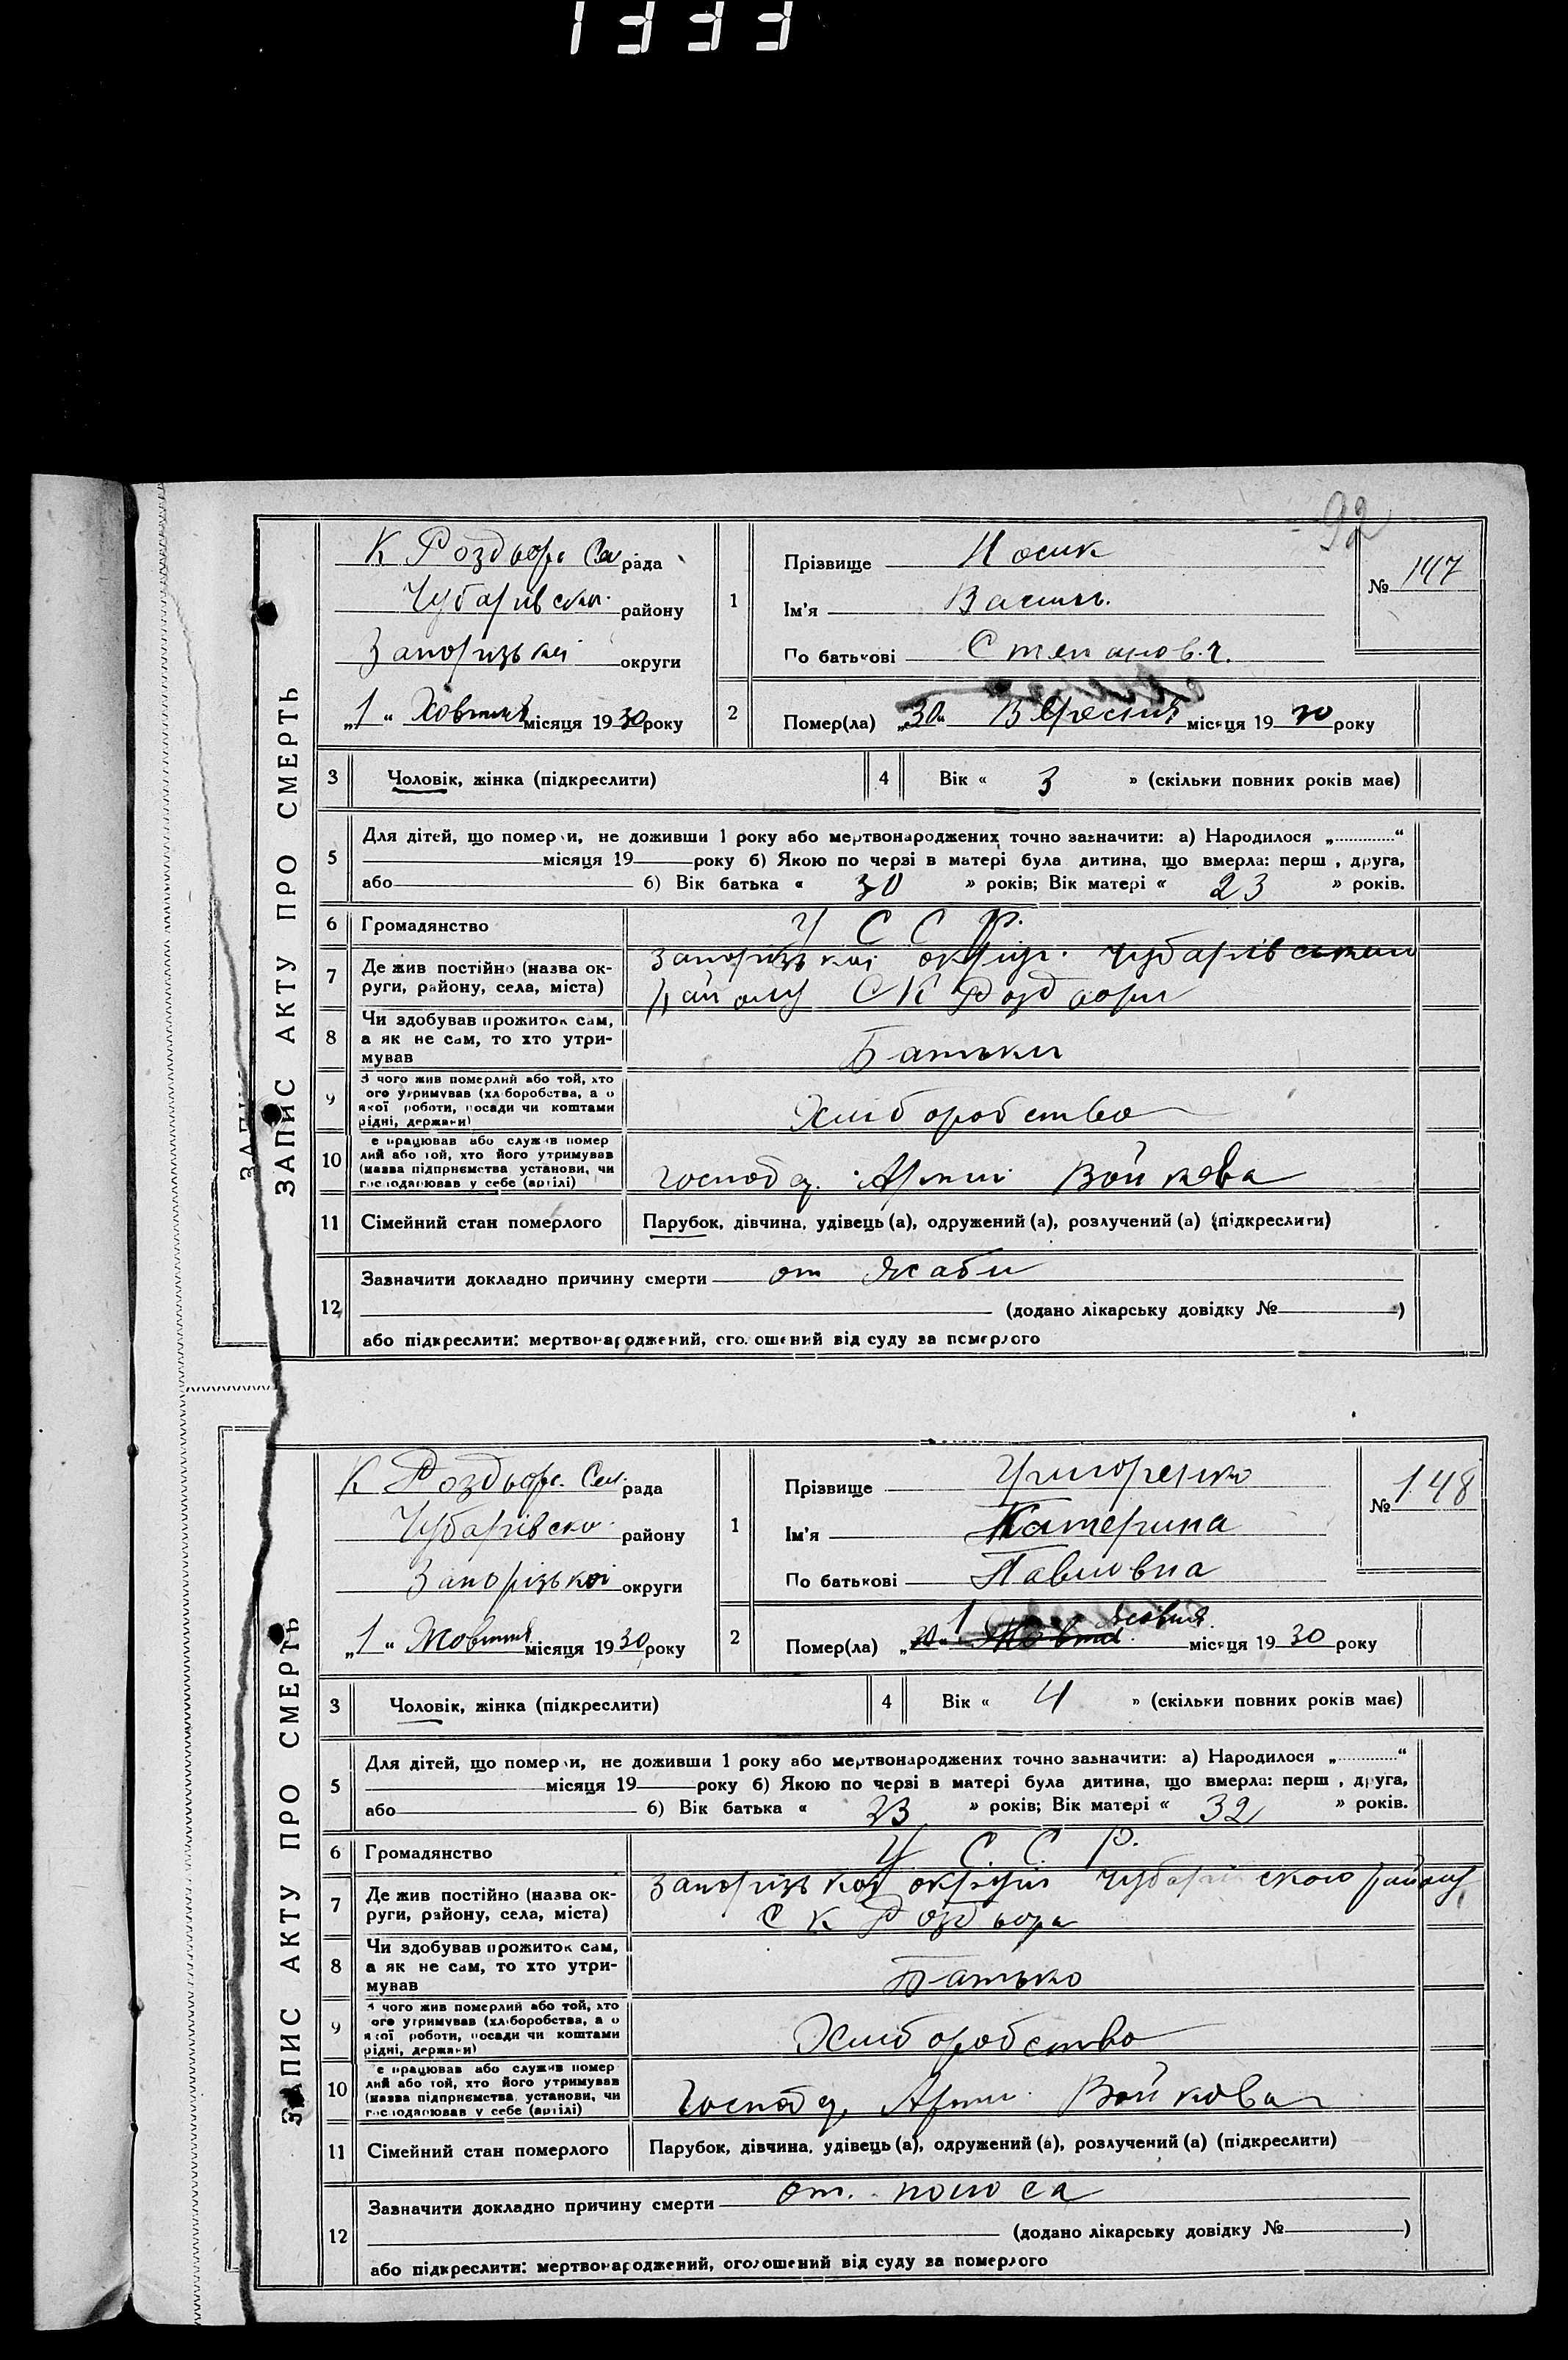 1333
92
К Роздорс Сел рада
Чубарівско. району
Запорізької округи
„1“ Жовтня місяця 1930 року
1
Прізвище Носик
Ім'я Василь.
По батькові Степанов.ч.
№ 147
2
Помер(ла) „30“ Вересня місяця 1930 року
ЗАПИС АКТУ ПРО СМЕРТЬ
3 Чоловік, жінка (підкреслити) 4 Вік « 3 » (скільки повних років має)
5
Для дітей, що померли, не доживши 1 року або мертвонароджених точно зазначити: а) Народилося „............“
місяця 19 року б) Якою по черзі в матері була дитина, що вмерла: перш , друга,
або б) Вік батька « 30 » років; Вік матері « 23 » років.
6 Громадянство У С С Р.
7 Де жив постійно (назва ок-
руги, району, села, міста)
Запорізької округ. Чубарівського
району С К Роздори
8 Чи здобував прожиток сам,
а як не сам, то хто утри-
мував
Батьки
9 З чого жив померлий або той, хто
ого утримував (хліборобства, а о
якої роботи, посади чи коштами
рідні, держави)
Хліборобство
10 е працював або служив помер
лий або той, хто його утримував
(назва підприємства установи, чи
господарював у себе (артілі)
господ. Артіль Войкова
11 Сімейний стан померлого Парубок, дівчина, удівець (а), одружений (а), розлучений (а) (підкреслити)
12
Зазначити докладно причину смерти от жаби
(додано лікарську довідку № )
або підкреслити: мертвонароджений, оголошений від суду за померлого
К Роздорс. Сел. рада
Чубарівско. району
Запорізької округи
„1“ Жовтня місяця 1930 року
1
Прізвище Григоренко
Ім'я Катерина
По батькові Павловна
№ 148
2
Помер(ла) 1 жовтня місяця 1930 року
ЗАПИС АКТУ ПРО СМЕРТЬ
3 Чоловік, жінка (підкреслити) 4 Вік « 4 » (скільки повних років має)
5
Для дітей, що померли, не доживши 1 року або мертвонароджених точно зазначити: а) Народилося „............“
місяця 19 року б) Якою по черзі в матері була дитина, що вмерла: перш , друга,
або б) Вік батька « 33 » років; Вік матері « 32 » років.
6 Громадянство У. С. С. Р.
7 Де жив постійно (назва ок-
руги, району, села, міста)
Запорізької округи Чубарівского району
С К Роздори
8 Чи здобував прожиток сам,
а як не сам, то хто утри-
мував
Батько
9 З чого жив померлий або той, хто
ого утримував (хліборобства, а о
якої роботи, посади чи коштами
рідні, держави)
Хліборобство
10 е працював або служив помер
лий або той, хто його утримував
(назва підприємства, установи, чи
господарював у себе (артілі)
Господ. Артіл. Войкова
11 Сімейний стан померлого Парубок, дівчина, удівець (а), одружений (а), розлучений (а) (підкреслити)
12
Зазначити докладно причину смерти от. поноса
(додано лікарську довідку № )
або підкреслити: мертвонароджений, оголошений від суду за померлого